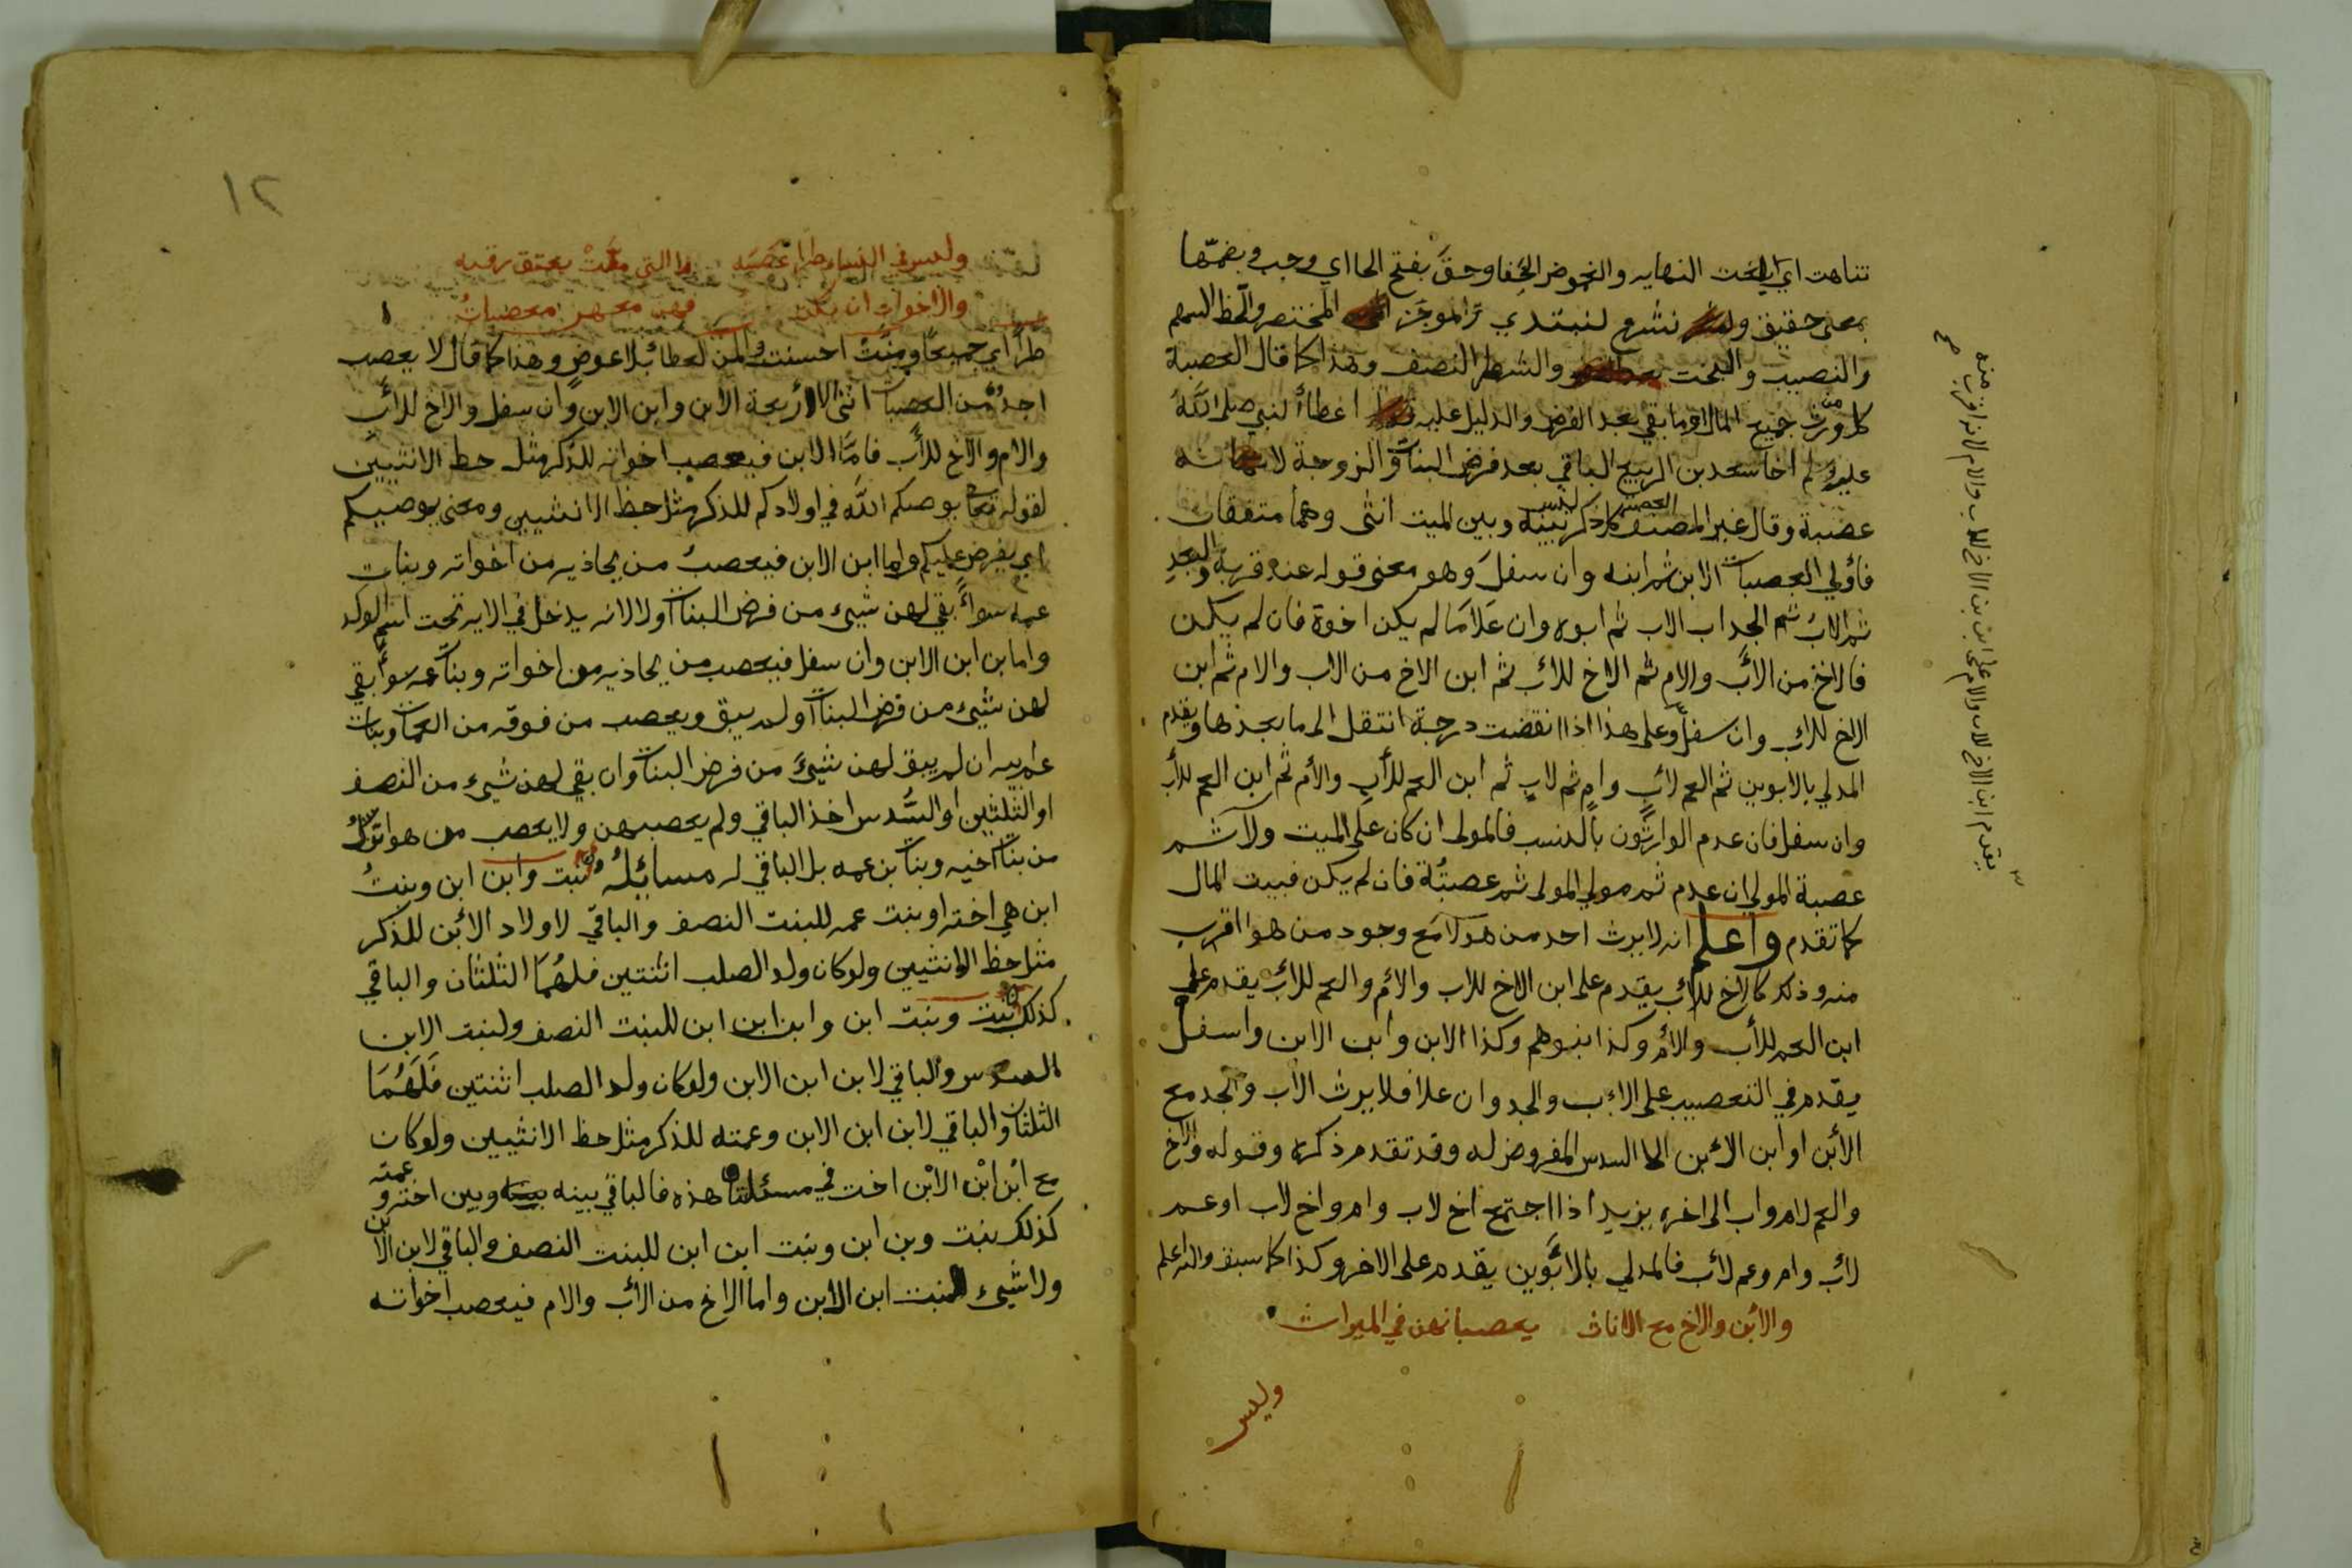 تناهت اي بلغت النهايه والغموض الخفا وحق بفتح الحا اي وجب وبضمها
بمعنى حقيق نشرع لنبتدي والموجز المختصر والحظ السهم
والنصيب والبخت والشطر النصف وهذا كما قال العصبة
كل من ورث جميع المال او ما بقي بعد الفرض والدليل عليه اعطا النبي صلى الله
عليه وسلم اخا سعد بن الربيع الباقي بعد فرض البنات والزوجة لانه
عصبة وقال غير المصنف العصبة كل ذكر ليس بينه وبين الميت انثى وهما متفقان
فاولي العصبات الابن ثم ابنه وان سفل وهو معنى قوله عند قربه والبعد
ثم الاب ثم الجد اب الاب ثم ابوه وان علا ما لم يكن اخوة فان لم يكن
فالاخ من الاب والام ثم الاخ للاب ثم ابن الاخ من الاب والام ثم ابن
الاخ للاب وان سفل وعلى هذا اذا انقضت درجة انتقل الى ما بعدها ويقدم
المدلي بالابوين ثم العم لاب وام ثم لاب ثم ابن العم للأب والأم ثم ابن العم للأب
وان سفل فان عدم الوارثون بالنسب فالمولى ان كان على الميت ولا ثم
عصبة المولى ان عدم ثم مولي المولى ثم عصبته فان لم يكن فبيت المال
كما تقدم واعلم انه لا يرث احد من هولا مع وجود من هو اقرب
منه وذلك كالاخ للاب يقدم على ابن الاخ للاب والام والعم للاب يقدم على
ابن العم للأب والام وكذا بنوهم وكذا الابن وابن الابن واسفل
يقدم في التعصيب على الاب والجد وان علا فلا يرث الاب والجد مع
الابن او ابن الابن الا السدس المفروض له وقد تقدم ذكره وقوله والاخ
والعم لام واب الى اخره يريد اذا اجتمع اخ لاب وام واخ لاب او عم
لاب وام وعم لاب فالمدلي بالابوين يقدم على الاخر وكذا كما سبق والله اعلم
والابن والاخ مع الاناث يعصبانهن في الميراث
وليس
يقدم ابن الاخ للاب والام على ابن ابن الاخ للاب والام لانه اقرب منه
١٢
وليس في النساء طرا عصبه الا التي منت بعتق رقبه
والاخوات ان يكن فهن معهن معصبات
طرا اي جميعا ومنت احسنت والمن العطا بلا عوض وهذا كما قال لا يعصب
احد من العصبات انثى الا أربعة الابن وابن الابن وان سفل والاخ للأب
والام والاخ للأب فاما الابن فيعصب اخواته للذكر مثل حظ الانثيين
لقوله تعا يوصيكم الله في اولادكم للذكر مثل حظ الانثيين ومعنى يوصيكم
اي يفرض عليكم واما ابن الابن فيعصب من يحاذيه من اخواته وبنات
عمه سواء بقي لهن شيء من فرض البنات اولا لانه يدخل في الايه تحت اسم الولد
واما بن ابن الابن وان سفل فيعصب من يحاذيه من اخواته وبنات عمه سوا بقي
لهن شيء من فرض البنات او لم يبق ويعصب من فوقه من العمات وبنات
عم ابيه ان لم يبق لهن شيء من فرض البنات وان بقي لهن شيء من النصف
او الثلثين او السدس اخذ الباقي ولم يعصبهن ولا يعصب من هو انزل
من بنات اخيه وبنات بن عمه بل الباقي له مسائله بنت وابن ابن وبنت
ابن هي اخته او بنت عمه للبنت النصف والباقي لاولاد الابن للذكر
مثل حظ الانثيين ولو كان ولد الصلب اثنتين فلهما الثلثان والباقي
كذلك بنت وبنت ابن وابن ابن ابن للبنت النصف ولبنت الابن
السدس والباقي لابن ابن الابن ولو كان ولد الصلب اثنتين فلهما
الثلثان والباقي لابن ابن الابن وعمته للذكر مثل حظ الانثيين ولو كان
مع ابن ابن الابن اخت في مسئلتنا هذه فالباقي بينه وبين اخته وعمته
كذلك بنت وبن ابن وبنت ابن ابن للبنت النصف والباقي لابن الابن
ولا شيء لبنت ابن الابن واما الاخ من الاب والام فيعصب اخواته